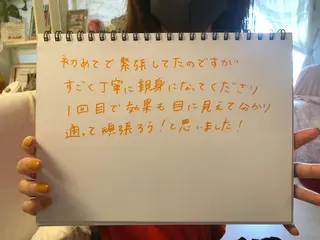 初めてで緊張してたのですがい
すごく丁寧に親身になってくださり
1回目で効果も目に見えて分かり
通って頑張ろう！と思いました！